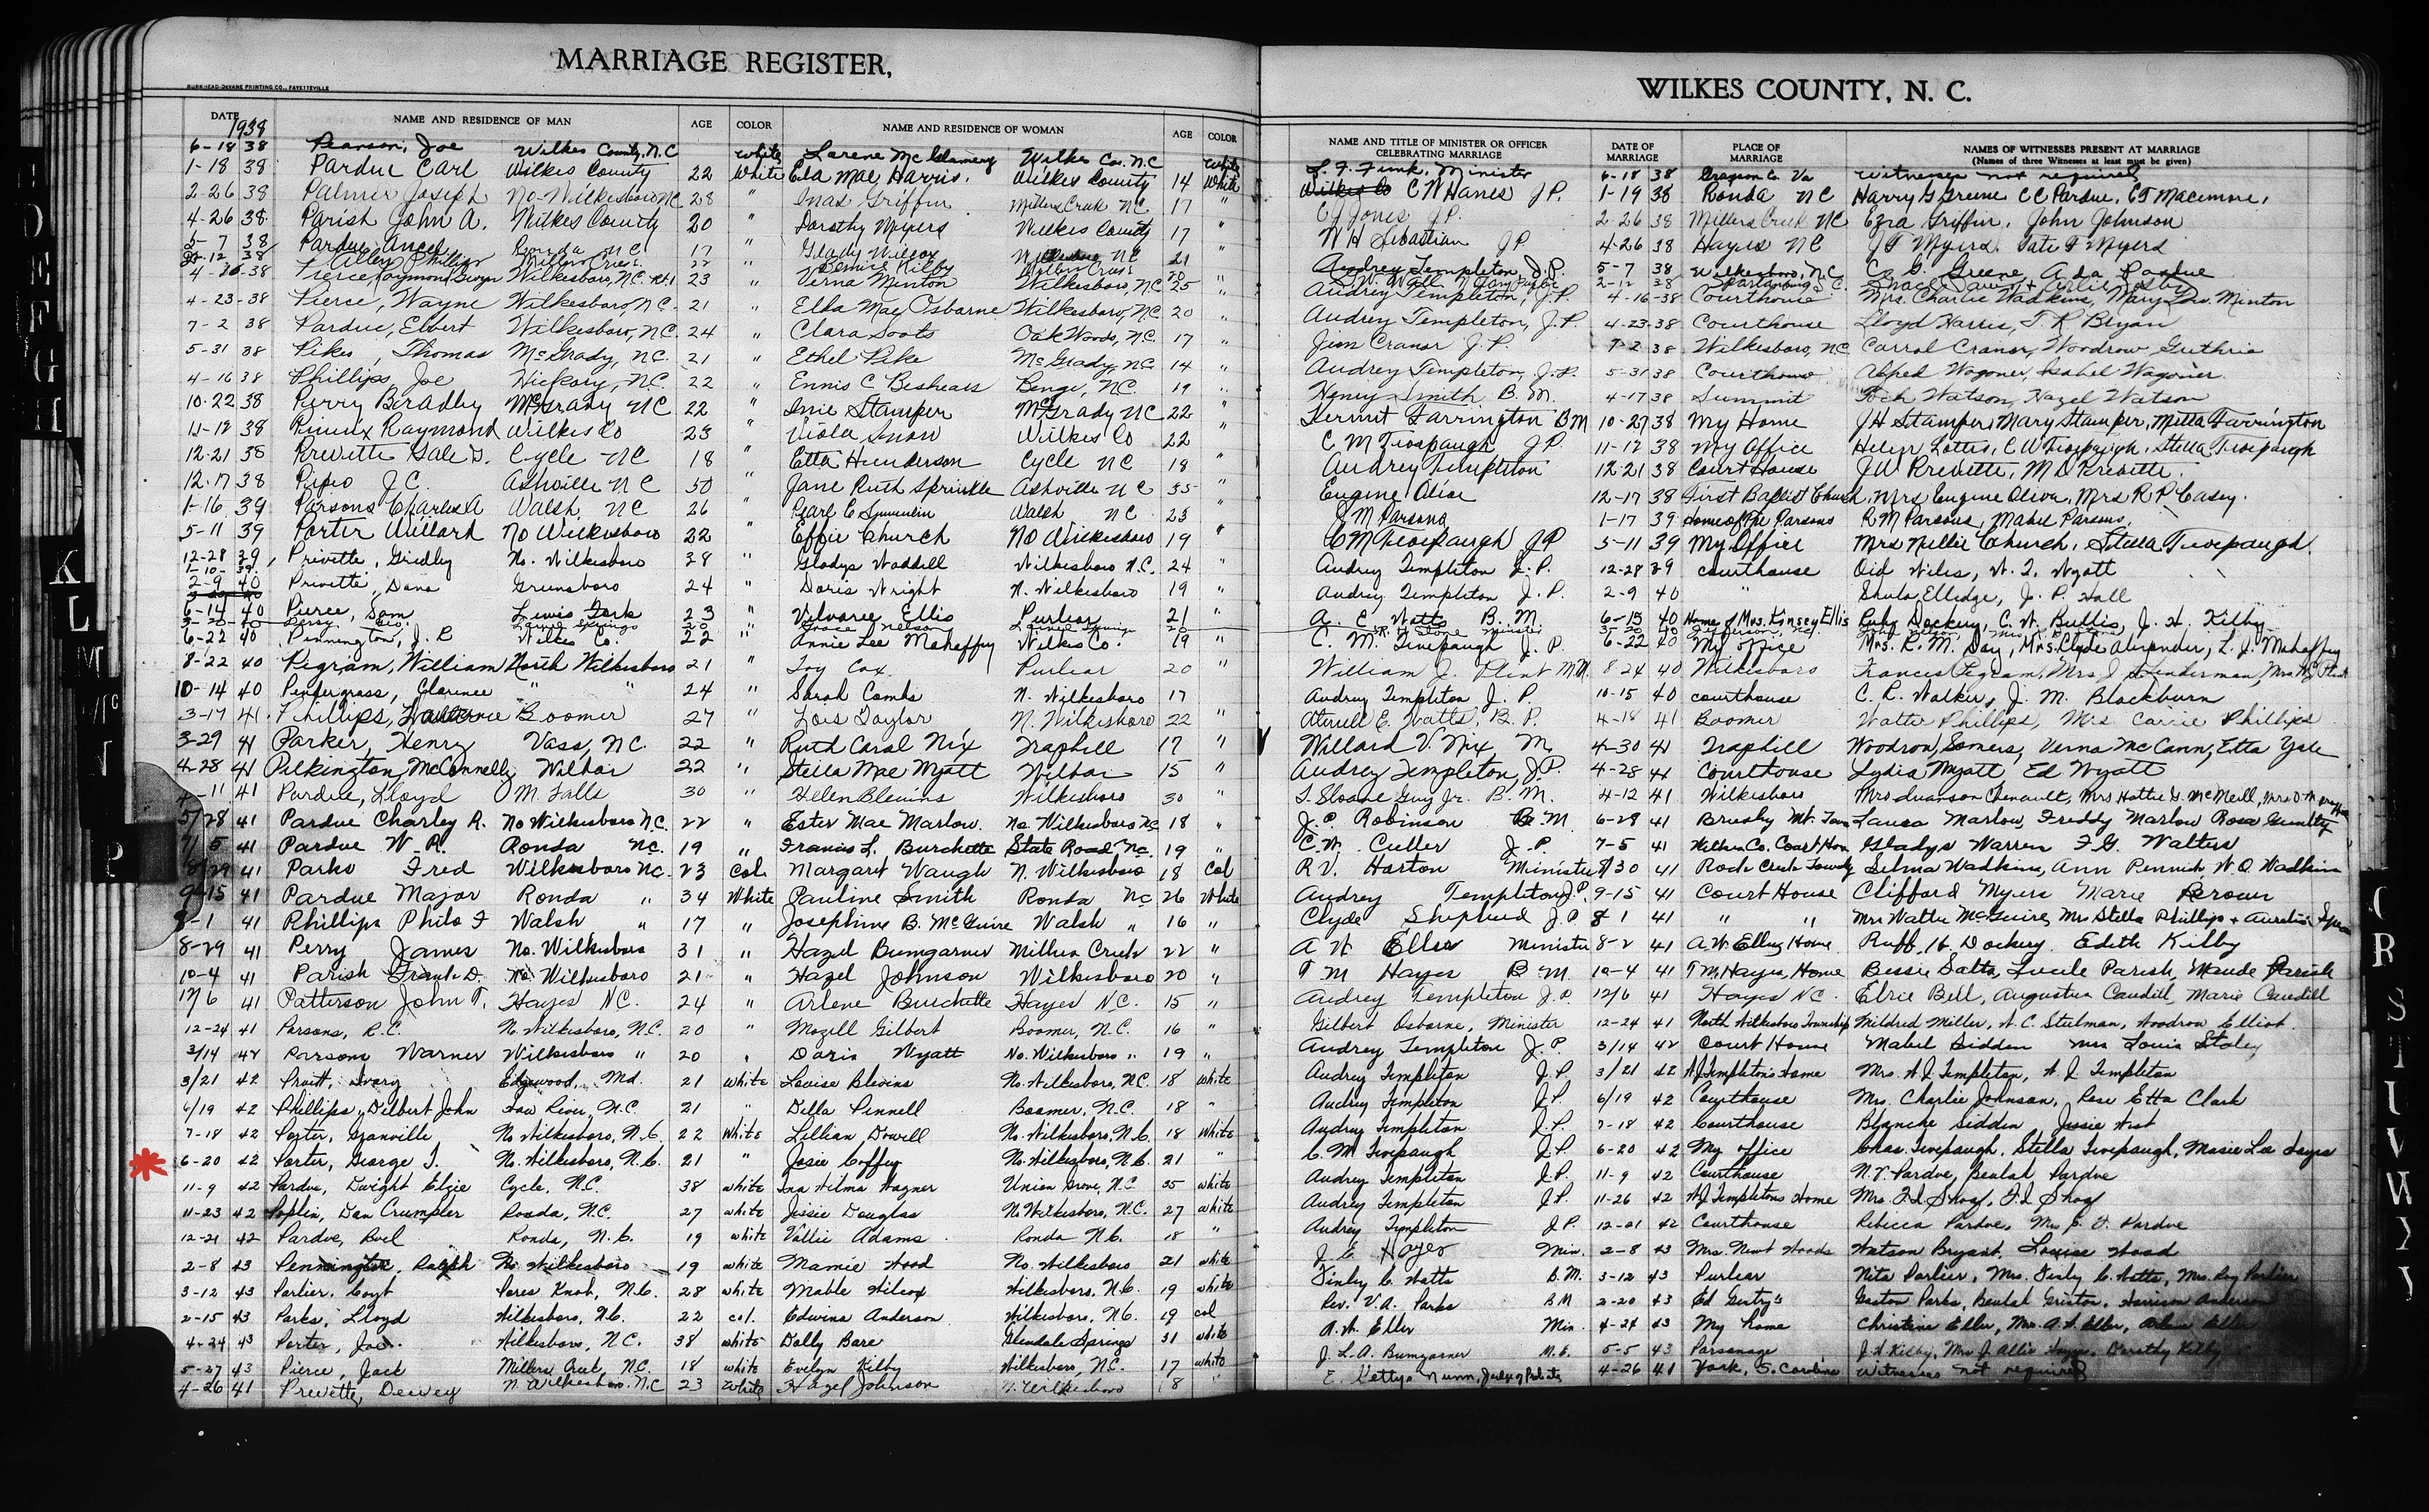 MARRIAGE REGISTER,
WILKES COUNTY, N. C.
BURKHEAD-DEVANE PRINTING CO., FAYETTEVILLE
DATE NAME AND RESIDENCE OF MAN AGE COLOR NAME AND RESIDENCE OF WOMAN AGE COLOR NAME AND TITLE OF MINISTER OR OFFICER CELEBRATING MARRIAGE DATE OF MARRIAGE PLACE OF MARRIAGE NAMES OF WITNESSES PRESENT AT MARRIAGE (Names of three Witnesses at least must be given)
1938
6-18 38 Pearson, Joe Wilkes County, N.C White Lorene Wilkes Co. N.C White L. F. Funk, Minister 6-18 38 Grayson Co. Va Witnesses not required
1-18 38 Pardue Carl Wilkes County 22 White Ela Mae Harris. Wilkes County 14 White C W Hanes J P. 1-19 38 Ronda N C Harry G Greene C C Pardue,
2-26 38 Palmer Joseph No-Wilkesboro NC 28 " Inas Griffin Millers Creek N.C. 17 " C J Jones J P. 2-26 38 Millers Creek NC Ezra Griffin, John Johnson
4-26 38 Parish John A. Wilkes County 20 " Dorothy Myers Wilkes County 17 " W H Sebastian J P. 4-26 38 Hayes N C J F Myers, Tate F Myers
5-7 38 Pardue Ronda N C 17 " Gladys Wilcox N C 21 Audrey Templeton, J.P. 5-7 38 Wilkesboro, N.C. C. G. Greene, Ada Pardue
2-12 38 Phillips Bernice Kilby 2-12 38 Spartanburg S.C.
4-16-38 Pierce, Raymond Gwyn Wilkesboro, N.C. Rt.1 23 " Verna Minton Wilkesboro, N.C. 25 " Audrey Templeton, J.P. 4-16-38 Courthouse Mrs. Charlie Wadkins, Mary Minton
4-23-38 Pierce, Wayne Wilkesboro, N.C. 21 " Elba Mae Osborne Wilkesboro, N.C. 20 " Audrey Templeton, J.P. 4-23-38 Courthouse Lloyd Harris, T. R Bryan
7-2 38 Pardue, Elbert Wilkesboro, N.C. 24 " Clara Soots Oak Woods, N.C. 17 " Jim Cranor J.P. 7-2 38 Wilkesboro, N.C. Carrol Cranor, Woodrow Guthrie
5-31 38 Pike, Thomas McGrady, N.C. 21 " Ethel Pike McGrady, N.C. 14 " Audrey Templeton, J.P. 5-31 38 Courthouse Alfred Wagoner, Isabel Wagoner
4-16 38 Phillips, Joe Hickory, N.C. 22 " Ennis C Beshears Benge, N.C. 19 " Henry Smith B.M. 4-17 38 Summit Watson, Hazel Watson
10-22 38 Perry Bradley McGrady N C 22 " Inie Stamper McGrady N C 22 " Kermit Farrington B M 10-27 38 My Home J H Stamper, Mary Stamper, Metta Farrington
11-12 38 Raymond Wilkes Co 23 " Viola Snow Wilkes Co 22 " C M Tevepaugh J P. 11-12 38 My Office Helen Lottis, C W Tevepaugh, Stella Tevepaugh
12-21 38 Prevette Gale S. Cycle N C 18 " Etta Henderson Cycle N C 18 " Audrey Templeton 12-21 38 Court House J W Prevette, M D Prevette.
12-17 38 J. C. Ashville N C 50 " Jane Ruth Sprinkle Ashville N C 35 " Eugene Olive 12-17 38 First Baptist Church, Mrs Eugene Olive, Mrs R P Casey.
1-16 39 Parsons Charles A Walsh, N C 26 " Pearl C Walsh N C 23 J M Parsons 1-17 39 Home of Parsons R M Parsons, Mabel Parsons,
5-11 39 Porter Willard No Wilkesboro 22 " Effie Church No Wilkesboro 19 " C M Tevepaugh J P 5-11 39 My Office Mrs Nellie Church, Stella Tevepaugh.
12-28 39 Privette, Gridley No. Wilkesboro 38 " Gladys Waddell Wilkesboro N.C. 24 " Audrey Templeton J. P. 12-28 39 courthouse Oid Wiles, W. T. Wyatt
1-10-39
2-9 40 Privette, Dana Greensboro 24 " Doris Wright N. Wilkesboro 19 " Audrey Templeton J. P. 2-9 40 " Shula Elledge, J. P. Hall
6-14 40 Pierce, Sam Lewis Fork 23 " Vilvaree Ellis Purlear 21 " A. E Watts B. M 6-15 40 Home of Mrs. Kinsey Ellis Ruby Dockery, C. W. Bullis, J. H. Kilby
3-20 40 Laurel Springs 20 Grace Nelson Laurel Springs 20
6-22 40 Pennington, J. R Wilkes Co. 22 " Annie Lee Mahaffey Wilkes Co. 19 " C. M. Tevepaugh J. P. 6-22 40 My office Mrs. R. M. Day, Mrs. Clyde Alexander, L. J. Mahaffey
8-22 40 Pegram, William North Wilkesboro 21 " Ivy Cox Purlear 20 " William J. Plint M.M. 8 24 40 Wilkesboro Frances Pegram, Mrs. J Linderman, Mrs. W J Plint
10-14 40 Pendergrass, Clarence " " 24 " Sarah Combs N. Wilkesboro 17 Audrey Templeton J. P. 10-15 40 courthouse C. R. Walker, J. M. Blackburn
3-17 41 Phillips, Boomer 27 " Lois Taylor N. Wilkesboro 22 " Atwell E. Watts, B. P. 4-18 41 Boomer Walter Phillips, Mrs. Carrie Phillips
3-29 41 Parker, Henry Vass, N.C. 22 " Ruth Caral Nix Traphill 17 " Willard V. Nix, M. 4-30 41 Traphill Woodrow Somers, Verna McCann, Etta Yale
4-28 41 Pilkington, McConnelly Wilbar 22 " Stella Mae Wyatt Wilbar 15 " Audrey Templeton, J.P. 4-28 41 Courthouse Lydia Wyatt, Ed Wyatt
4-11 41 Pardue, Lloyd M. Falls 30 " Helen Blevins Wilkesboro 30 " T. Sloane Guy Jr. B. M. 4-12 41 Wilkesboro Mrs Swanson Chenault, Mrs Hattie G. McNeill,
5/28 41 Pardue Charley R. No Wilkesboro N.C. 22 " Ester Mae Marlow. No. Wilkesboro NC 18 " J. C. Robinson B. M 6-28 41 Brushy Mt. Laura Marlow, Freddy Marlow Rosa
7/5 41 Pardue W. R. Ronda N.C. 19 " Francis L. Burchette State Road N.C. 19 " C. W. Culler J. P. 7-5 41 Wilkes Co. Court Hou Gladys Warren F. G. Walters
8/29 41 Parks Fred Wilkesboro N.C. 23 Col. Margaret Waugh N. Wilkesboro 18 Col R V. Horton Minister 8/30 41 Rock Creek Selma Wadkins, Ann Pennick, W. O. Wadkins
9-15 41 Pardue Major Ronda " 34 White Pauline Smith Ronda NC 26 White Audrey Templeton J.P. 9-15 41 Court House Clifford Myers Marie Brown
8-1 41 Phillips Philo F Walsh " 17 " Josephine B. McGuire Walsh " 16 " Clyde Shepherd J.P 8 1 41 " " Mrs Walter McGuire, Mrs Stella Phillips +
8-29 41 Perry James No. Wilkesboro 31 " Hazel Bumgarner Millers Creek 22 " A W Eller Minister 8-2 41 A. W. Eller Home Ruff H. Dockery Edith Kilby
10-4 41 Parish Frank D. No. Wilkesboro 21 " Hazel Johnson Wilkesboro 20 " T M Hayes B M. 10-4 41 T M. Hayes, Home Bessie Salts, Lucile Parish, Maude Parish
12/6 41 Patterson John T. Hayes N.C. 24 " Arlene Burchette Hayes N.C. 15 " Audrey Templeton J. P. 12/6 41 Hayes N.C. Elsie Bell, Augustus Caudill, Marie Caudill
12-24 41 Parsons, R.C. N. Wilkesboro, N.C. 20 " Mozell Gilbert Boomer, N.C. 16 " Gilbert Osborne, Minister 12-24 41 North Wilkesboro Township Mildred Miller, A. C. Steelman, Woodrow Elliot
3/14 42 Parsons Warner Wilkesboro " 20 " Doris Wyatt No. Wilkesboro " 19 " Audrey Templeton J. P. 3/14 42 Court House Mabel Sidden Mrs Louis Staley
3/21 42 Pruitt, Ivory Edgewood, Md. 21 White Louise Blevins No. Wilkesboro, N.C. 18 White Audrey Templeton J.P. 3/21 42 A J Templetons Home Mrs. A J. Templeton, A. J. Templeton
6/19 42 Phillips, Delbert John Haw River, N.C. 21 " Della Pennell Boomer, N.C. 18 " Audrey Templeton J.P. 6/19 42 Courthouse Mrs. Charlie Johnson, Rose Etta Clark
7-18 42 Porter, Granville No Wilkesboro, N.C. 22 White Lillian Dowell No. Wilkesboro, N.C. 18 White Audrey Templeton J.P. 7-18 42 Courthouse Blanche Sidden Jessie West
6-20 42 Porter, George T. No. Wilkesboro, N.C. 21 " Josie Coffey No. Wilkesboro, N.C. 21 " C. M Tevepaugh J.P 6-20 42 My office Chas. Tevepaugh, Stella Tevepaugh, Masie Lee
11-9 42 Pardue, Dwight Elzie Cycle, N.C. 38 white Ina Wilma Wagner Union Grove, N.C 35 white Audrey Templeton J.P. 11-9 42 Courthouse N. V. Pardue, Beulah Pardue
11-23 42 Poplin, Dan Crumpler Ronda, N.C. 27 white Jessie Douglas No Wilkesboro, N.C. 27 white Audrey Templeton J.P. 11-26 42 A J Templetons Home Mrs. F. I. Shoaf, F. I Shoaf
12-21 42 Pardue, Ronda, N.C. 19 white Vallie Adams Ronda N.C. 18 " Audrey Templeton J.P. 12-21 42 Courthouse Rebecca Pardue, Pardue
2-8 43 Pennington, Ralph No. Wilkesboro 19 white Mamie Wood No. Wilkesboro 21 white J. C Hayes Min. 2-8 43 Mrs. Newt Woods Watson Bryant, Louise Wood
3-12 43 Parlier, Coyt Pores Knob, N.C. 28 white Mable Wilcox Wilkesboro, N.C. 19 white Finley C. Watts B.M. 3-12 43 Purlear Nita Parlier, Mrs. Finley C. Watts, Mrs. Roy Parlier
2-15 43 Parks, Lloyd Wilkesboro, N.C. 22 col. Edwina Anderson Wilkesboro, N.C. 19 col Rev. V. A. Parks B M 2-20 43 Ed Gentry's Gaston Parks, Beulah Harrison Anderson
4-24 43 Porter, Joe Wilkesboro, N.C. 38 white Dolly Bare Glendale Springs 31 white A. W. Eller Min. 4-24 43 My home Christine Eller, Mrs. A. W. Eller, Eller
5-27 43 Pierce, Jack Millers Creek, N.C. 18 white Evelyn Kilby Wilkesboro, N.C. 17 white J. L. A. Bumgarner M. E. 5-5 43 Parsonage J. H Kilby, Dorothy Kilby
4-26 41 Prevette, Dewey N. Wilkesboro, N.C 23 White Hazel Johnson N. Wilkesboro 18 " E. Nunn, Judge of Probate 4-26 41 York, S. Carolina Witnesses not required